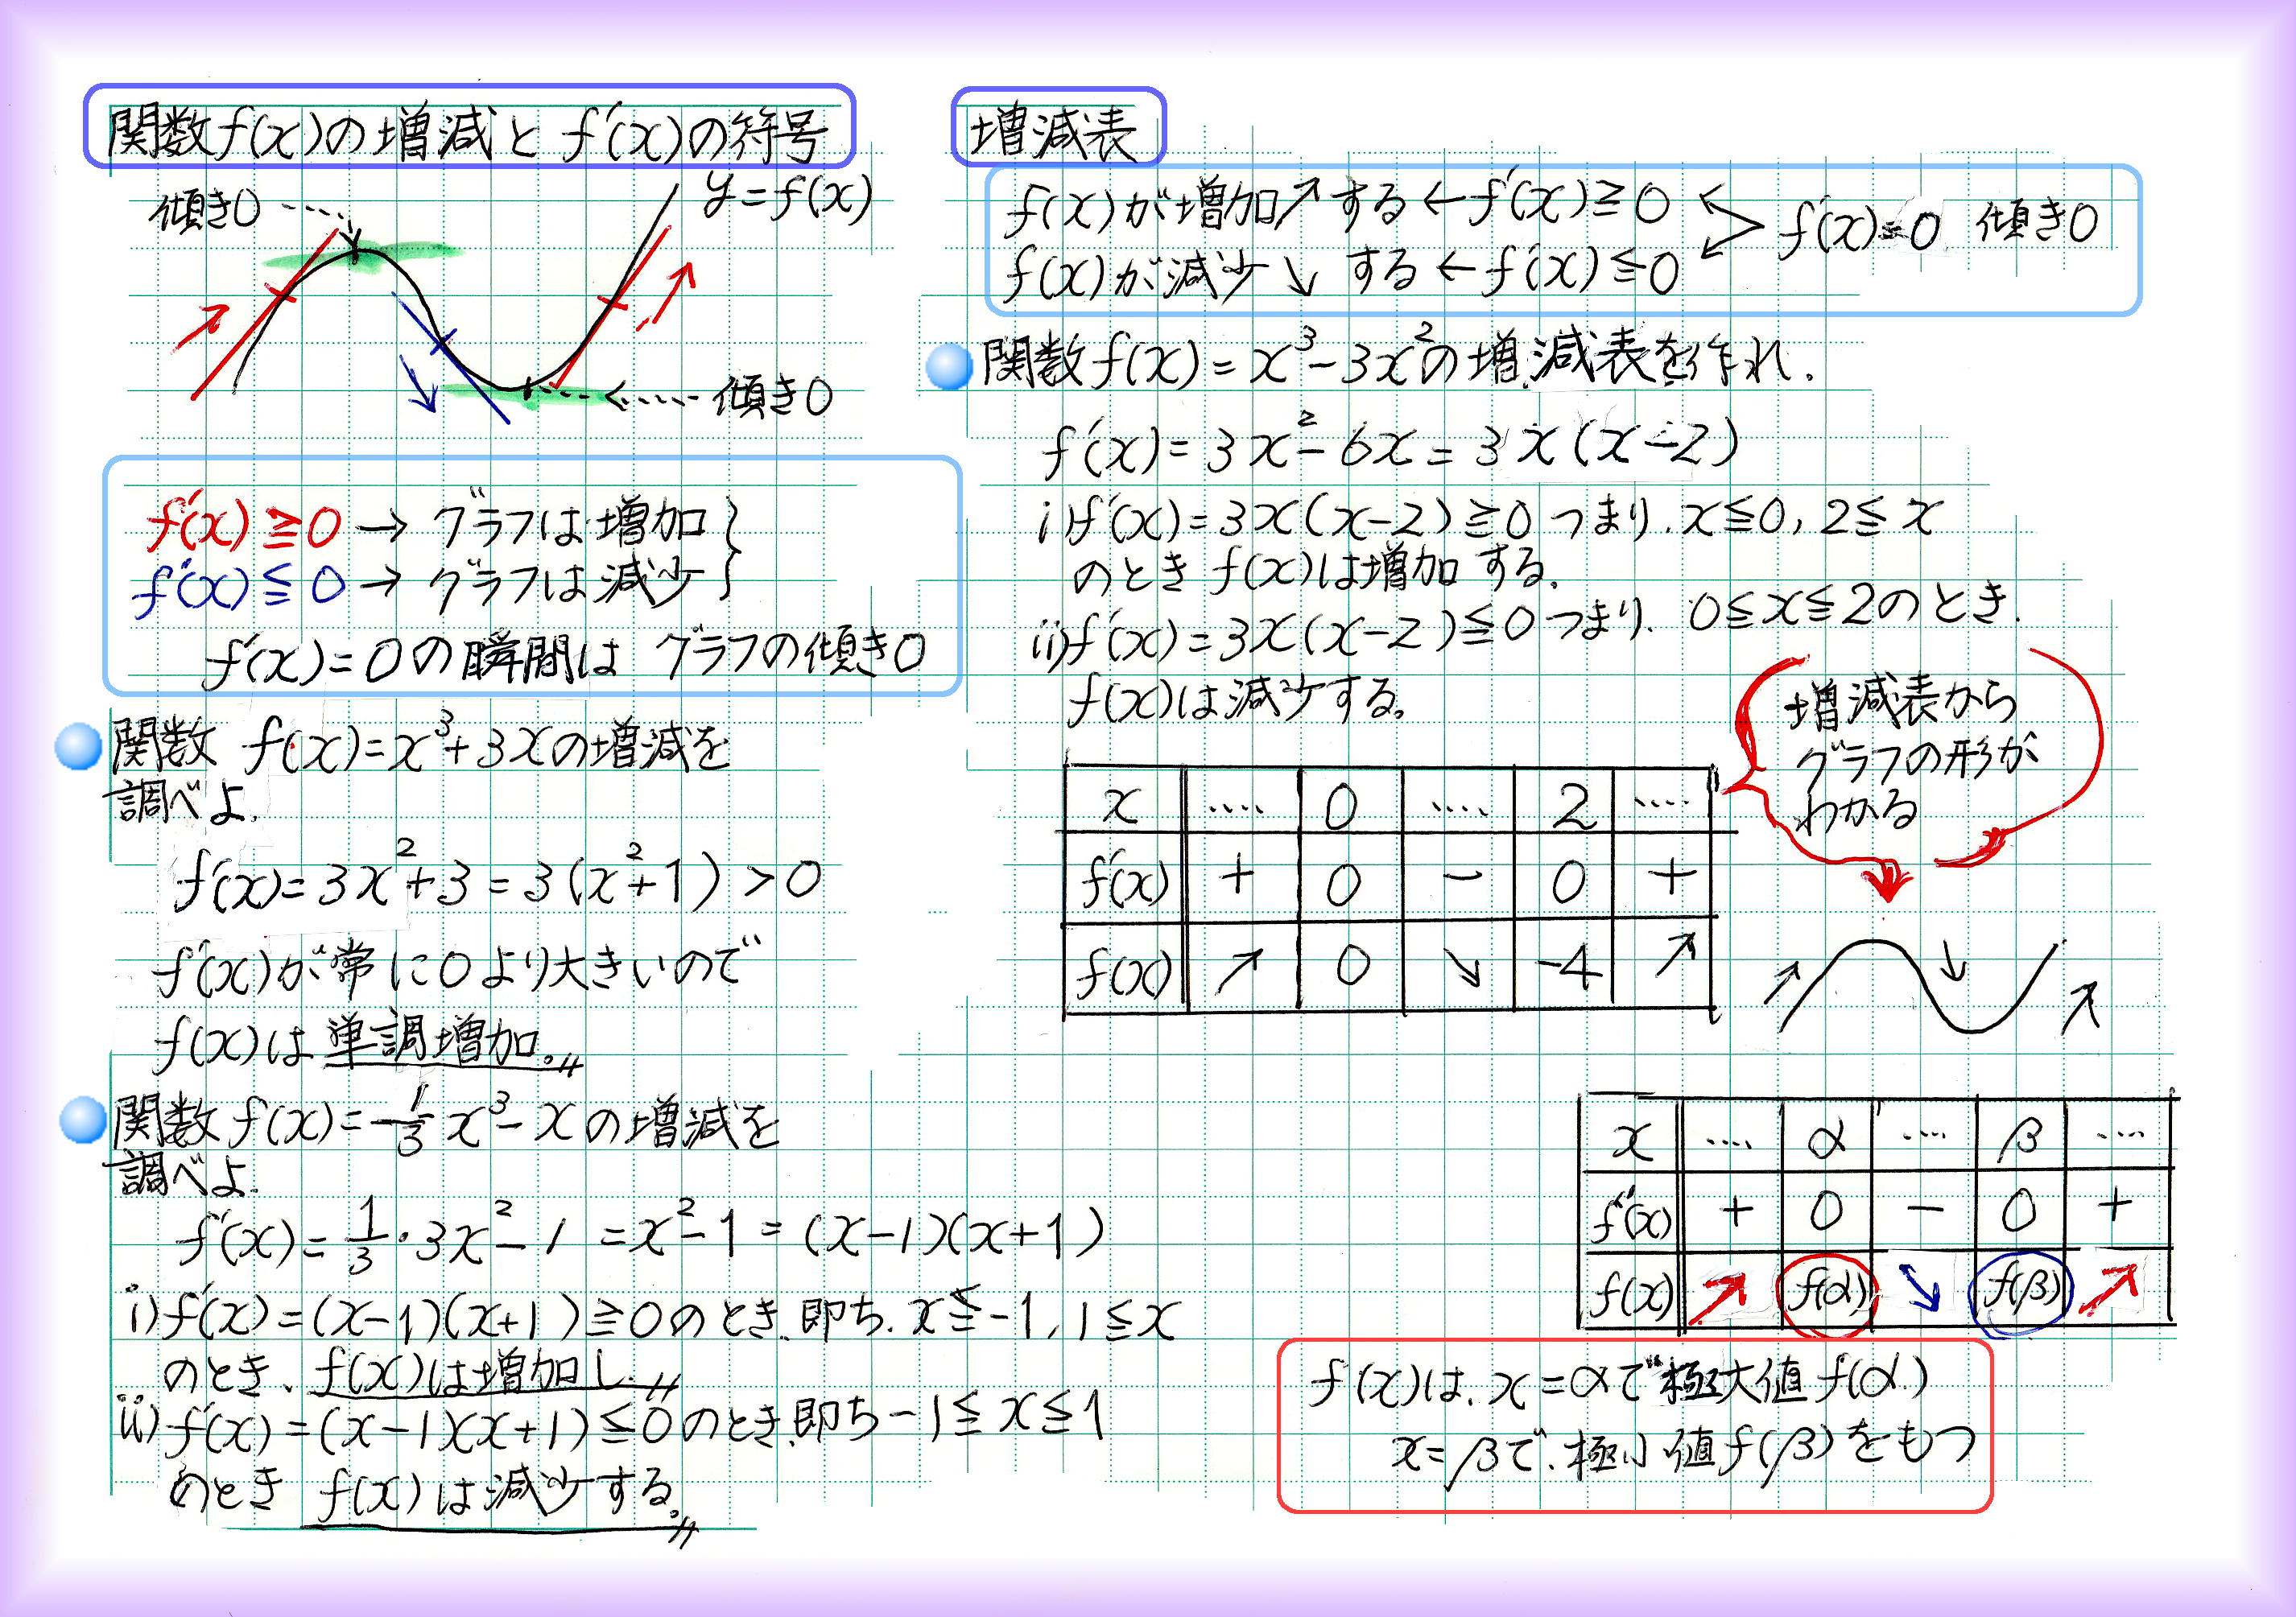 関数f(x)の増減とf'(x)の符号
傾き0
y=f(x)
傾き0
f'(x)≧0→グラフは増加
f'(x)≦0→グラフは減少
f'(x)=0の瞬間は グラフの傾き0
関数 f(x)=x³+3xの増減を
調べよ.
f'(x)=3x²+3=3(x²+1)>0
f'(x)が常に0より大きいので
f(x)は単調増加。
関数f(x)=-1/3x³-xの増減を
調べよ.
f'(x)=1/3・3x²-1=x²-1=(x-1)(x+1)
i)f'(x)=(x-1)(x+1)≧0のとき.即ち.x≦-1,1≦x
のとき、f(x)は増加し.
ii)f'(x)=(x-1)(x+1)≦0のとき.即ち-1≦x≦1
のとき f(x)は減少する。
増減表
f(x)が増加↗する←f'(x)≧0
f(x)が減少↘する←f'(x)≦0
f'(x)=0 傾き0
関数f(x)=x³-3x²の増減表を作れ.
f'(x)=3x²-6x=3x(x-2)
i)f'(x)=3x(x-2)≧0つまり.x≦0,2≦x
のときf(x)は増加する.
ii)f'(x)=3x(x-2)≦0つまり.0≦x≦2のとき.
f(x)は減少する。
x …. 0 …. 2 ….
f'(x) + 0 - 0 +
f(x) ↗ 0 ↘ -4 ↗
増減表から
グラフの形が
わかる
x …. α …. β ….
f'(x) + 0 - 0 +
f(x) ↗ f(α) ↘ f(β) ↗
f(x)は.x=αで極大値f(α)
x=βで.極小値f(β)をもつ